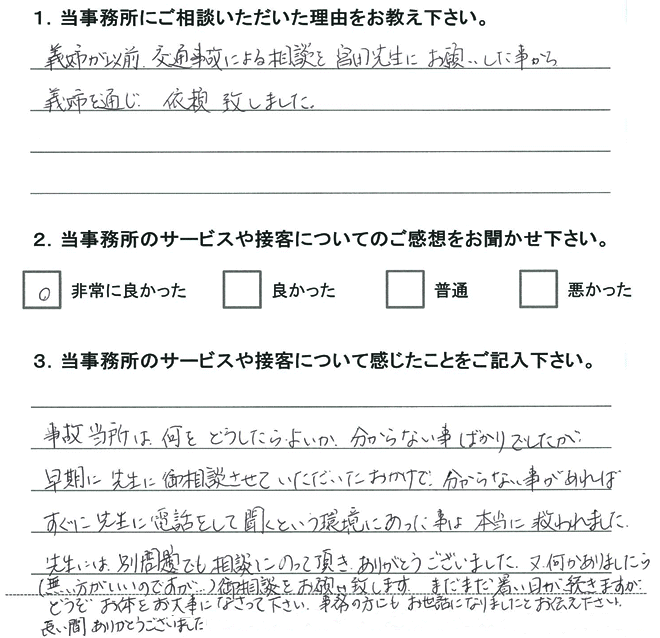 1. 当事務所にご相談いただいた理由をお教え下さい。
義姉が以前、交通事故による相談を宮田先生にお願いした事から
義姉を通じ 依頼致しました。
2. 当事務所のサービスや接客についてのご感想をお聞かせ下さい。
○ 非常に良かった 良かった 普通 悪かった
3. 当事務所のサービスや接客について感じたことをご記入下さい。
事故当所は、何をどうしたらよいか、分からない事ばかりでしたが
早期に先生に御相談させていただいたおかげで、分からない事があれば
すぐに先生に電話をして聞くという環境にあった事は本当に救われました。
先生には、別問題でも相談にのって頂き、ありがとうございました。又、何かありましたら
(無い方がいいのですが…)御相談をお願い致します。まだまだ暑い日が続きますが
どうぞ お体をお大事になさって下さい。事務の方にもお世話になりましたとお伝え下さい。
長い間ありがとうございました